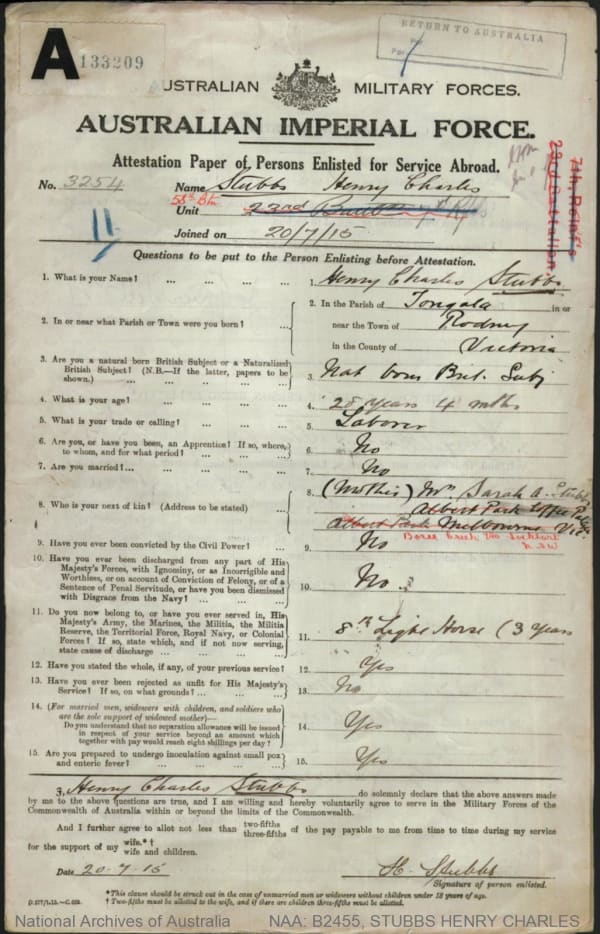 A
133209
RETURN TO AUSTRALIA
Per
AUSTRALIAN MILITARY FORCES.
AUSTRALIAN IMPERIAL FORCE.
Attestation Paper of Persons Enlisted for Service Abroad.
No. 3254 Name Stubbs Henry Charles
58th Btn
Unit 23rd
Joined on 20/7/15
23rd Battalion
7th Reinf's
Questions to be put to the Person Enlisting before Attestation.
1. What is your Name? ... ... ... ... 1. Henry Charles Stubbs
2. In or near what Parish or Town were you born? ... 2. In the Parish of Tongala in or
near the Town of Rodney
in the County of Victoria
3. Are you a natural born British Subject or a Naturalized
British Subject? (N.B.—If the latter, papers to be
shown.) ... ... ... ... 3. Nat born Brit. Subj
4. What is your age? ... ... ... ... 4. 28 years 4 mths
5. What is your trade or calling? ... ... ... 5. Laborer
6. Are you, or have you been, an Apprentice? If so, where,
to whom, and for what period? ... ... ... 6. No
7. Are you married?... ... ... ... 7. No
8. Who is your next of kin? (Address to be stated) ... 8. (Mother) Mrs Sarah A. Stubbs
Albert Park
Albert Park Melbourne Vic.
Boree Creek Via Lockhart
N.SW
9. Have you ever been convicted by the Civil Power? ... 9. No
10. Have you ever been discharged from any part of His
Majesty's Forces, with Ignominy, or as Incorrigible and
Worthless, or on account of Conviction of Felony, or of a
Sentence of Penal Servitude, or have you been dismissed
with Disgrace from the Navy? ... ... ... 10. No.
11. Do you now belong to, or have you ever served in, His
Majesty's Army, the Marines, the Militia, the Militia
Reserve, the Territorial Force, Royal Navy, or Colonial
Forces? If so, state which, and if not now serving,
state cause of discharge ... ... ... ... 11. 8th Light Horse (3 years
12. Have you stated the whole, if any, of your previous service? 12. Yes
13. Have you ever been rejected as unfit for His Majesty's
Service? If so, on what grounds? ... ... ... 13. No
14. (For married men, widowers with children, and soldiers who
are the sole support of widowed mother)—
Do you understand that no separation allowance will be issued
in respect of your service beyond an amount which
together with pay would reach eight shillings per day? 14. Yes
15. Are you prepared to undergo inoculation against small pox
and enteric fever? ... ... ... ... 15. Yes
I, Henry Charles Stubbs do solemnly declare that the above answers made
by me to the above questions are true, and I am willing and hereby voluntarily agree to serve in the Military Forces of the
Commonwealth of Australia within or beyond the limits of the Commonwealth.
And I further agree to allot not less than two-fifths
three-fifths of the pay payable to me from time to time during my service
for the support of my wife.*†
wife and children.
Date 20.7.15 H. Stubbs
Signature of person enlisted.
*This clause should be struck out in the case of unmarried men or widowers without children under 18 years of age.
† Two-fifths must be allotted to the wife, and if there are children three-fifths must be allotted.
National Archives of Australia NAA: B2455, STUBBS HENRY CHARLES